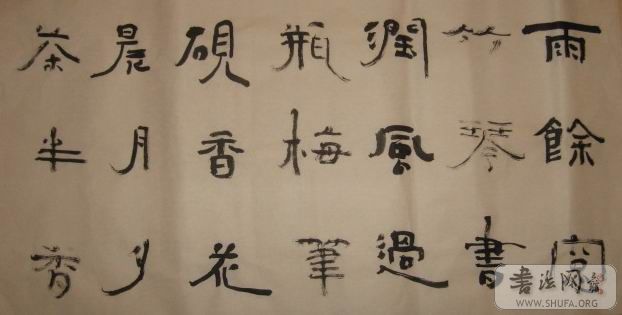 雨餘窗
竹琴書
潤風過
瓶梅筆
硯香花
晨月夕
茶半香
書法网
WWW.SHUFA.ORG